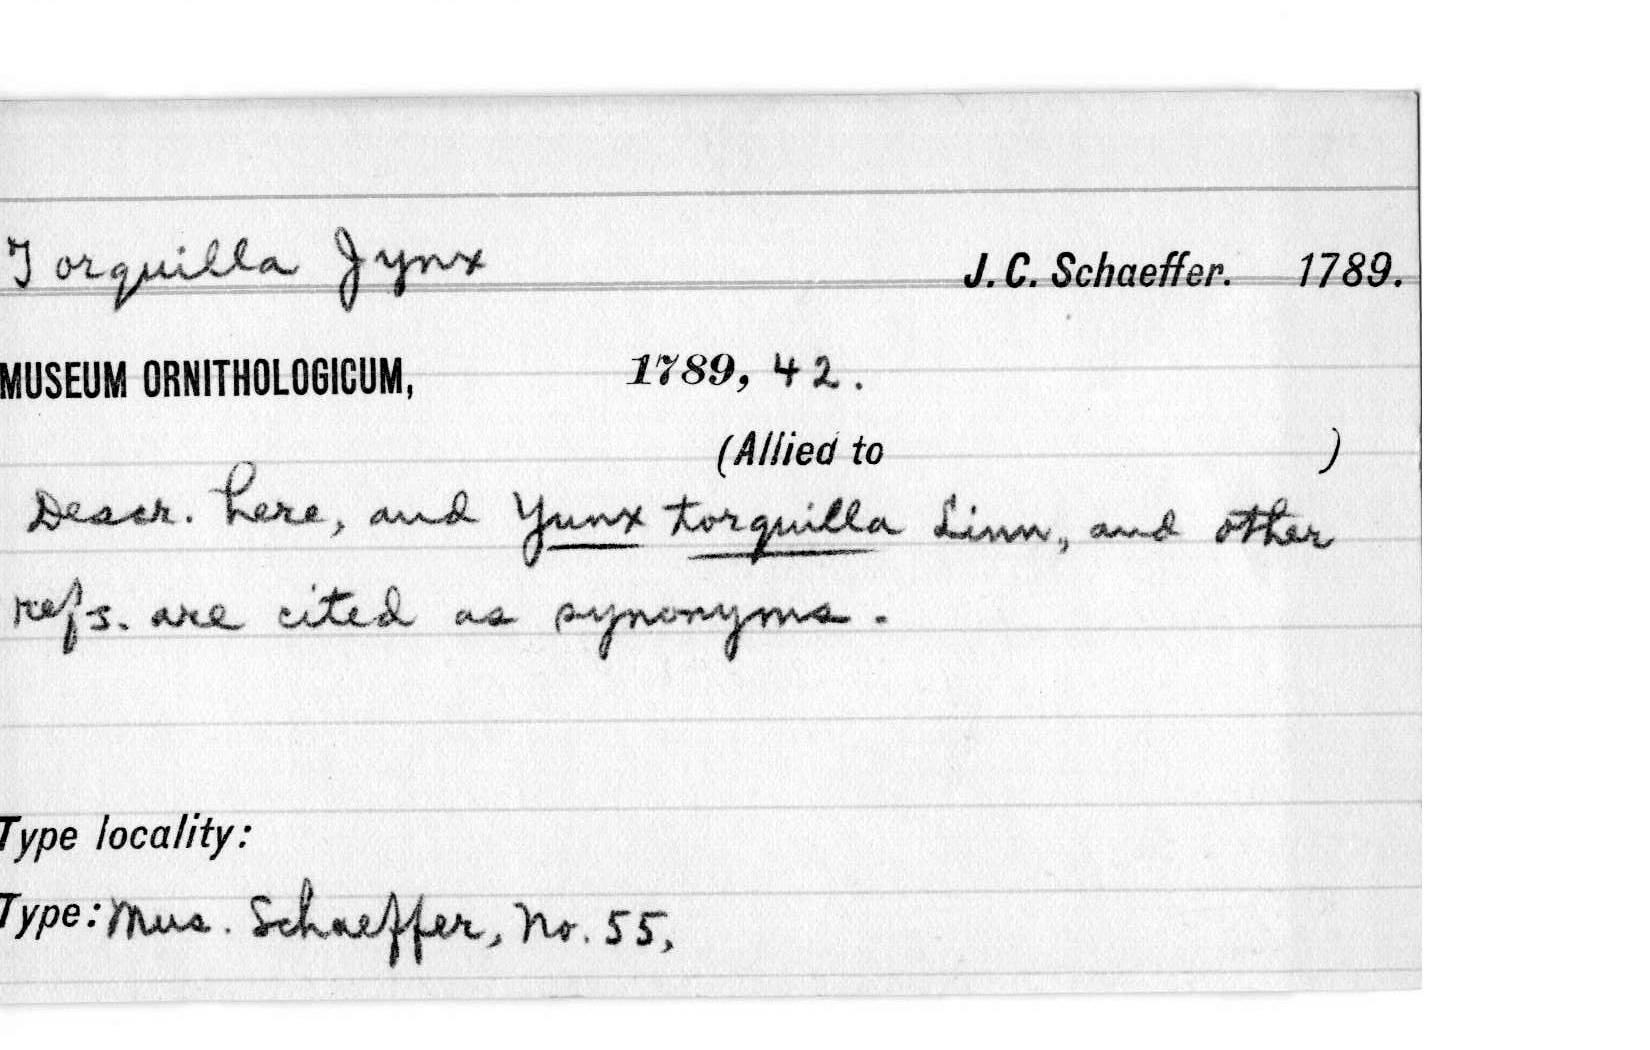 Torquilla Jynx J. C. Schaeffer. 1789.
MUSEUM ORNITHOLOGICUM, 1789, 42.
(Allied to )
Descr. here, and Yunx torquilla Linn, and other
refs. are cited as synonyms.
Type locality:
Type: Mus. Schaeffer, No. 55,